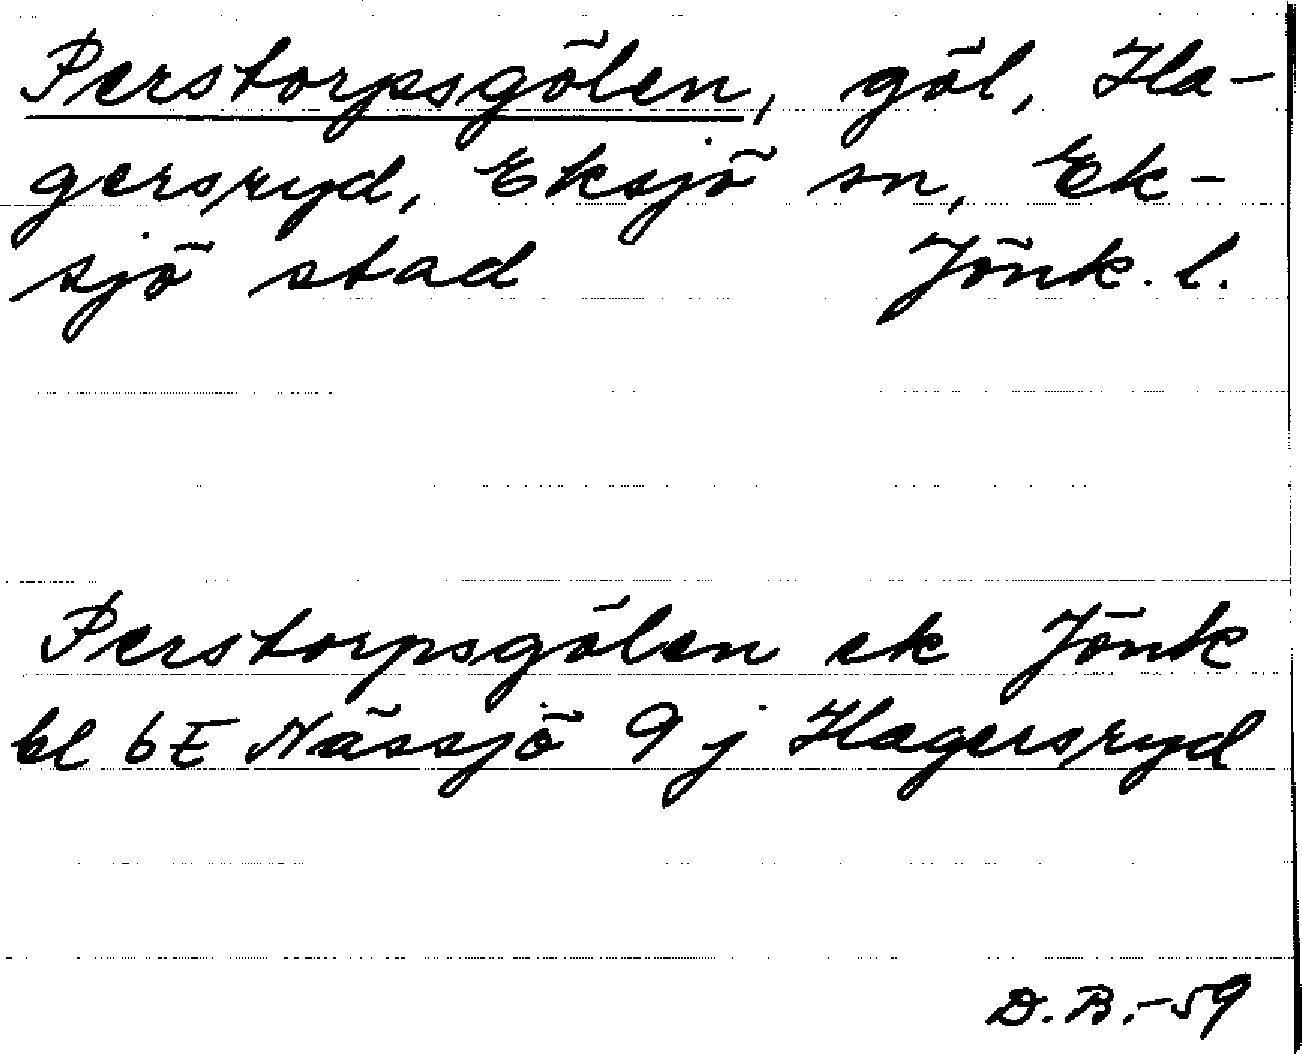 Perstorpsgölen, göl, Ha-
gersryd, Eksjö sn, Ek-
sjö stad Jönk. l.
Perstorpsgölen ek Jönk
bl 6E Nässjö 9 j Hagersryd
D.B.-59